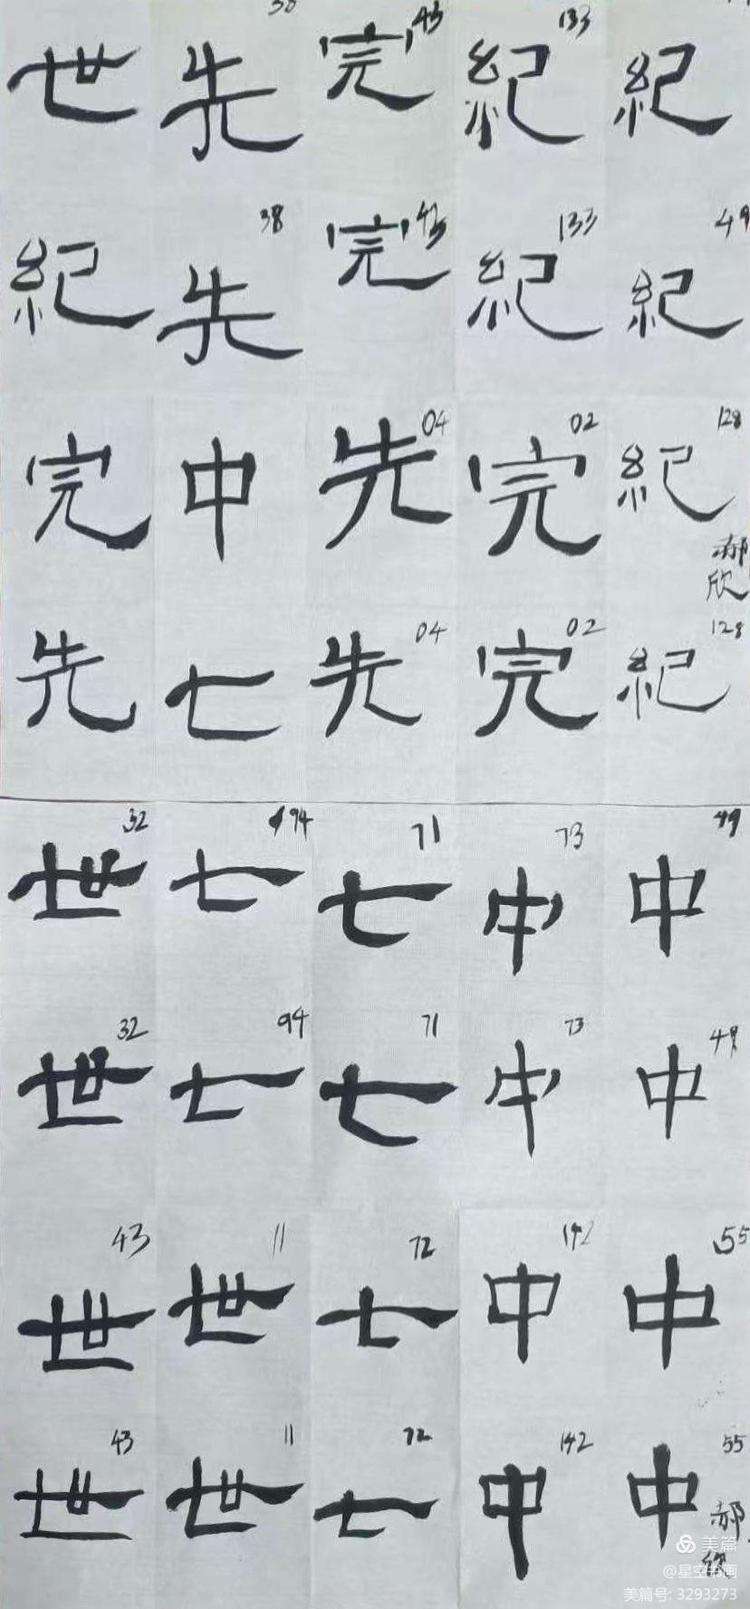 世 先 完 43 紀 133 紀
紀 先 38 完 43 紀 133 紀 49
完 中 先 04 完 02 紀 128
郝欣
先 七 先 04 完 02 紀 128
世 32 七 94 七 71 中 73 中 49
世 32 七 94 七 71 中 73 中 49
世 43 世 11 七 72 中 142 中 55
世 43 世 11 七 72 中 142 中 55
郝欣
美篇
@星空书画
美篇号: 3293273